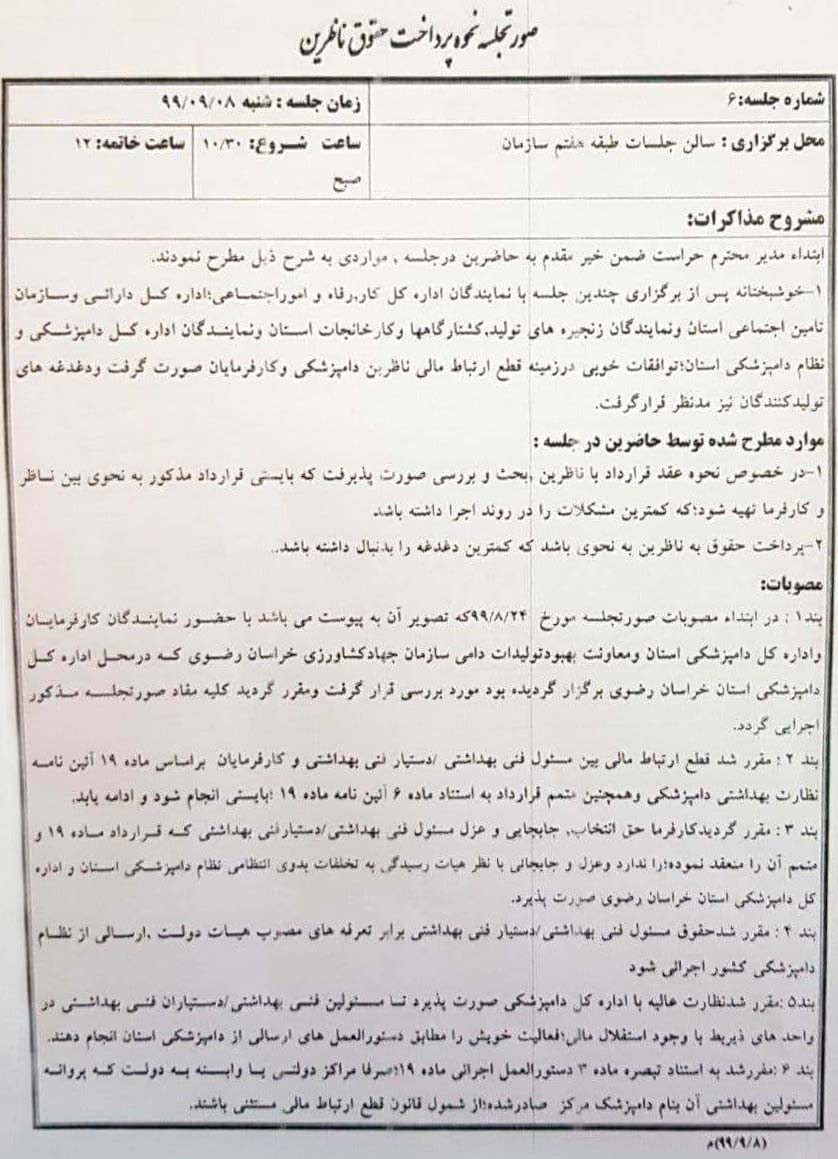 صورتجلسه نحوه پرداخت حقوق ناظرین
شماره جلسه:۶
زمان جلسه : شنبه ۹۹/۰۹/۰۸
محل برگزاری : سالن جلسات طبقه هفتم سازمان
ساعت شروع: ۱۰/۳۰ صبح
ساعت خاتمه: ۱۲
مشروح مذاکرات:
ابتداء مدیر محترم حراست ضمن خیر مقدم به حاضرین درجلسه , مواردی به شرح ذیل مطرح نمودند.
۱-خوشبختانه پس از برگزاری چندین جلسه با نمایندگان اداره کل کار,رفاه و اموراجتماعی؛اداره کل دارائی وسازمان
تامین اجتماعی استان ونمایندگان زنجیره های تولید,کشتارگاهها وکارخانجات استان ونمایندگان اداره کل دامپزشکی و
نظام دامپزشکی استان؛توافقات خوبی درزمینه قطع ارتباط مالی ناظرین دامپزشکی وکارفرمایان صورت گرفت ودغدغه های
تولیدکنندگان نیز مدنظر قرارگرفت.
موارد مطرح شده توسط حاضرین در جلسه :
۱-در خصوص نحوه عقد قرارداد با ناظرین ,بحث و بررسی صورت پذیرفت که بایستی قرارداد مذکور به نحوی بین ناظر
و کارفرما تهیه شود؛که کمترین مشکلات را در روند اجرا داشته باشد.
۲-پرداخت حقوق به ناظرین به نحوی باشد که کمترین دغدغه را بدنبال داشته باشد..
مصوبات:
بند۱ : در ابتداء مصوبات صورتجلسه مورخ ۹۹/۸/۲۴که تصویر آن به پیوست می باشد با حضور نمایندگان کارفرمایان
واداره کل دامپزشکی استان ومعاونت بهبودتولیدات دامی سازمان جهادکشاورزی خراسان رضوی که درمحل اداره کل
دامپزشکی استان خراسان رضوی برگزار گردیده بود مورد بررسی قرار گرفت ومقرر گردید کلیه مفاد صورتجلسه مذکور
اجرایی گردد.
بند ۲ : مقرر شد قطع ارتباط مالی بین مسئول فنی بهداشتی /دستیار فنی بهداشتی و کارفرمایان براساس ماده ۱۹ آئین نامه
نظارت بهداشتی دامپزشکی وهمچنین متمم قرارداد به استناد ماده ۶ آئین نامه ماده ۱۹ ؛بایستی انجام شود و ادامه یابد.
بند ۳ : مقرر گردیدکارفرما حق انتخاب, جابجایی و عزل مسئول فنی بهداشتی/دستیارفنی بهداشتی که قرارداد ماده ۱۹ و
متمم آن را منعقد نموده؛را ندارد وعزل و جابجائی با نظر هیات رسیدگی به تخلفات بدوی انتظامی نظام دامپزشکی استان و اداره
کل دامپزشکی استان خراسان رضوی صورت پذیرد.
بند ۴ : مقرر شدحقوق مسئول فنی بهداشتی/دستیار فنی بهداشتی برابر تعرفه های مصوب هیات دولت ,ارسالی از نظام
دامپزشکی کشور اجرائی شود
بند۵ :مقرر شدنظارت عالیه با اداره کل دامپزشکی صورت پذیرد تا مسئولین فنی بهداشتی/دستیاران فنی بهداشتی در
واحد های ذیربط با وجود استقلال مالی؛فعالیت خویش را مطابق دستورالعمل های ارسالی از دامپزشکی استان انجام دهند.
بند ۶ :مقررشد به استناد تبصره ماده ۳ دستورالعمل اجرائی ماده ۱۹؛صرفا مراکز دولتی یا وابسته به دولت که پروانه
مسئولین بهداشتی آن بنام دامپزشک مرکز صادرشده؛از شمول قانون قطع ارتباط مالی مستثنی باشند.
(۹۹/۹/۸)م